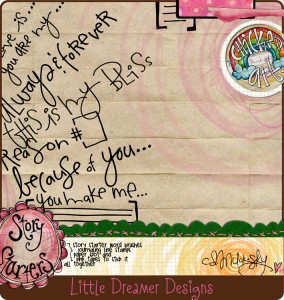 love is...
you are my...
always & forever
this is my Bliss
Reason #
because of you...
you make me...
CHICKABUG
ART
Story
Starters
7 Story Starter word brushes
1 journaling line stamps
1 paper set and
1 pink tapes to stick it
all together
Little Dreamer Designs